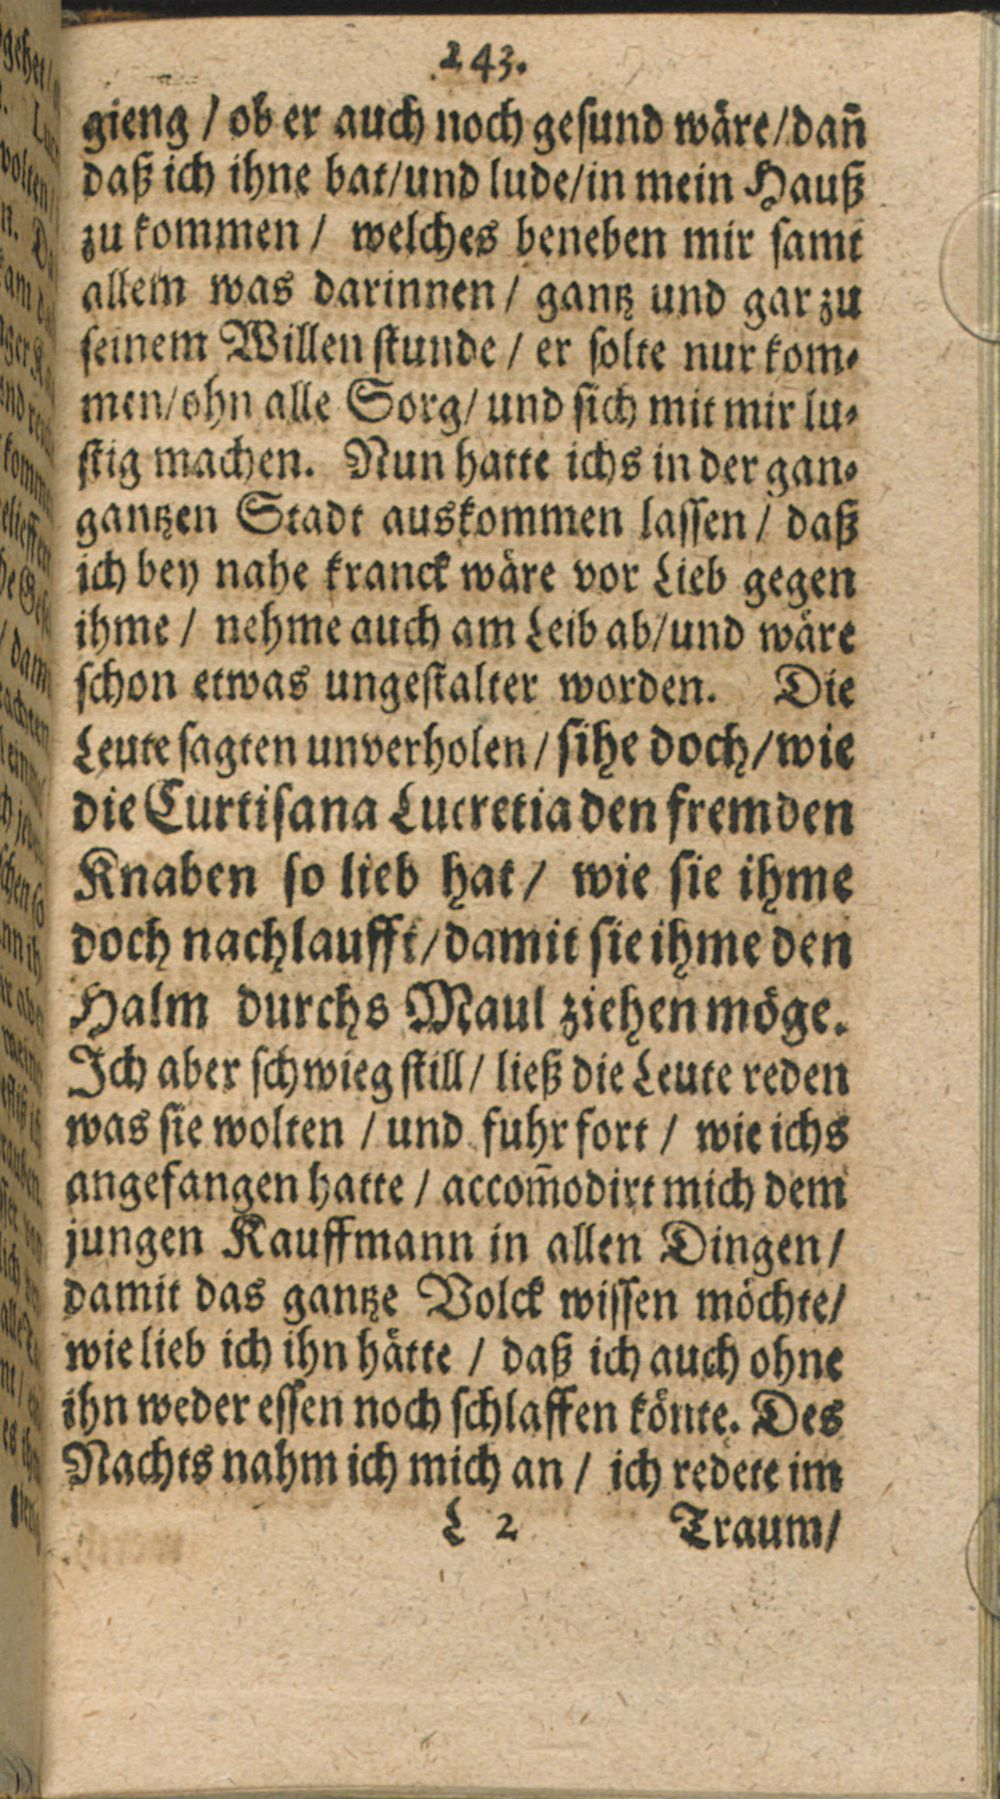 243.
gieng / ob er auch noch gesund wäre / dañ
daß ich ihne bat / und lude / in mein Hauß
zu kommen / welches beneben mir samt
allem was darinnen / gantz und gar zu
seinem Willen stunde / er solte nur kom-
men / ohn alle Sorg / und sich mit mir lu-
stig machen. Nun hatte ichs in der gan-
gantzen Stadt auskommen lassen / daß
ich bey nahe kranck wäre vor Lieb gegen
ihme / nehme auch am Leib ab / und wäre
schon etwas ungestalter worden. Die
Leute sagten unverholen / sihe doch / wie
die Curtisana Lucretia den fremden
Knaben so lieb hat / wie sie ihme
doch nachlaufft / damit sie ihme den
Halm durchs Maul ziehen möge.
Ich aber schwieg still / ließ die Leute reden
was sie wolten / und fuhr fort / wie ichs
angefangen hatte / accom̃odirt mich dem
jungen Kauffmann in allen Dingen /
damit das gantze Volck wissen möchte /
wie lieb ich ihn hätte / daß ich auch ohne
ihn weder essen noch schlaffen könte. Des
Nachts nahm ich mich an / ich redete im
L 2 Traum /